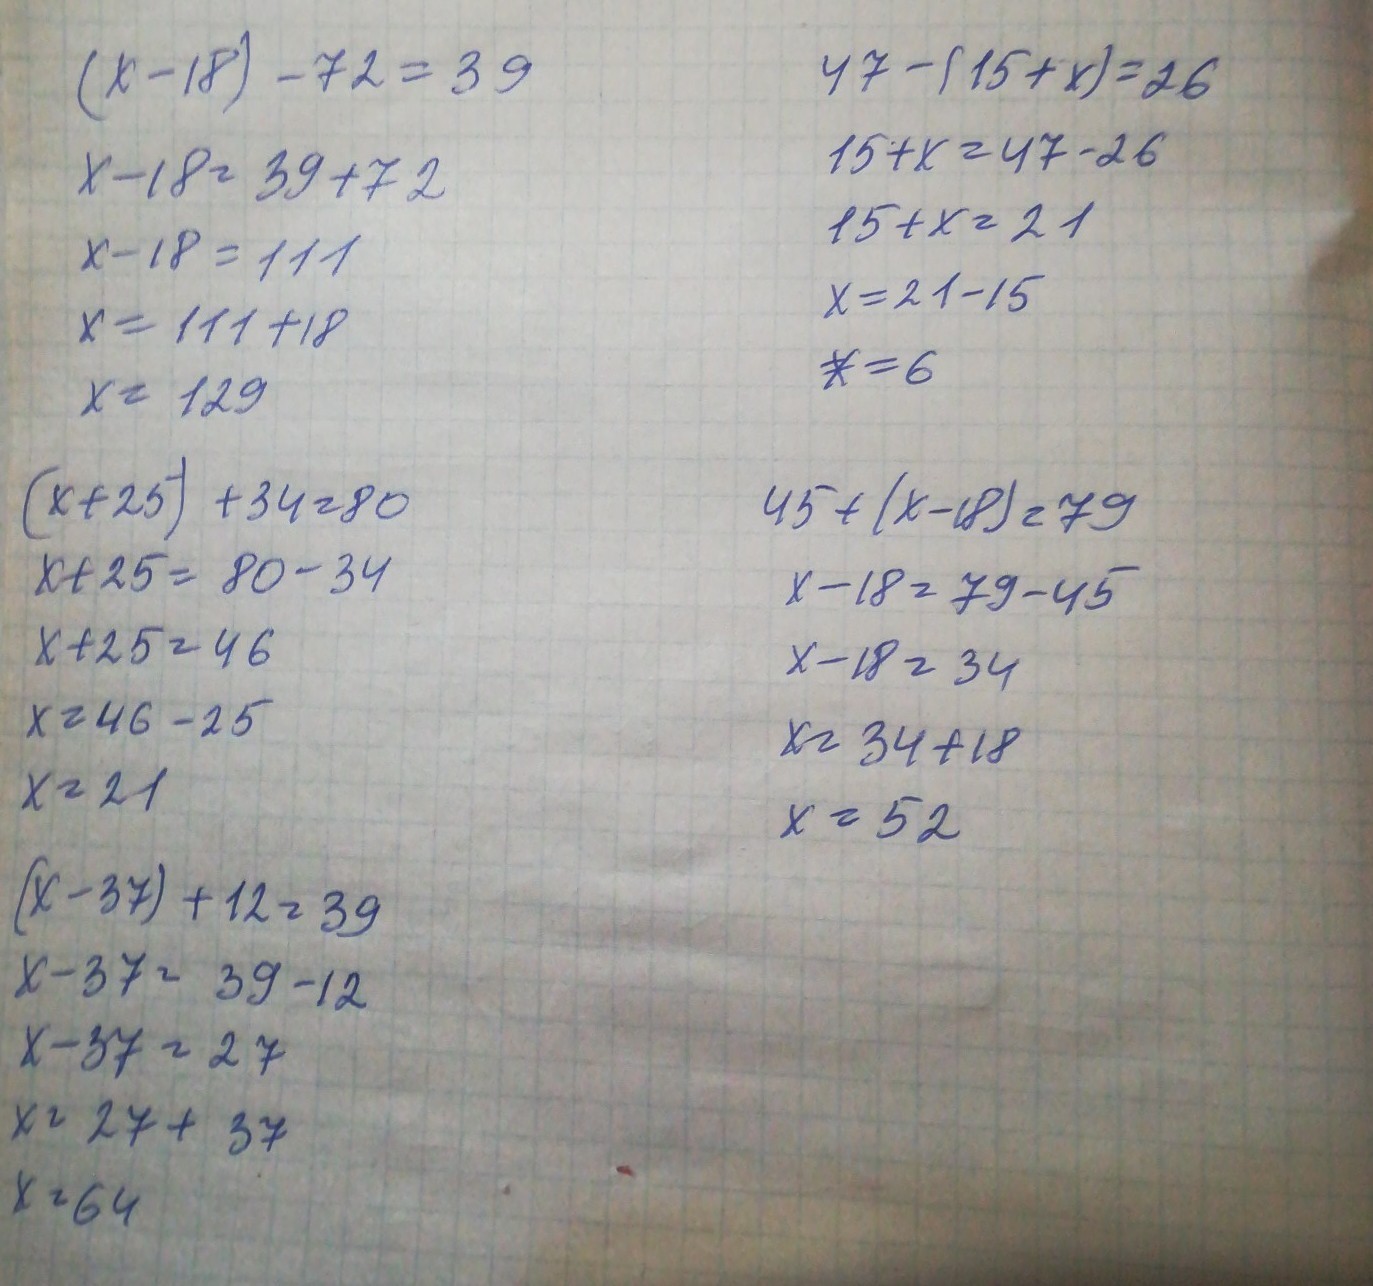 (x-18) -72=39
x-18=39+72
x-18=111
x=111+18
x=129
47-(15+x)=26
15+x=47-26
15+x=21
x=21-15
x=6
(x+25)+34=80
x+25=80-34
x+25=46
x=46-25
x=21
45+(x-18)=79
x-18=79-45
x-18=34
x=34+18
x=52
(x-37)+12=39
x-37=39-12
x-37=27
x=27+37
x=64